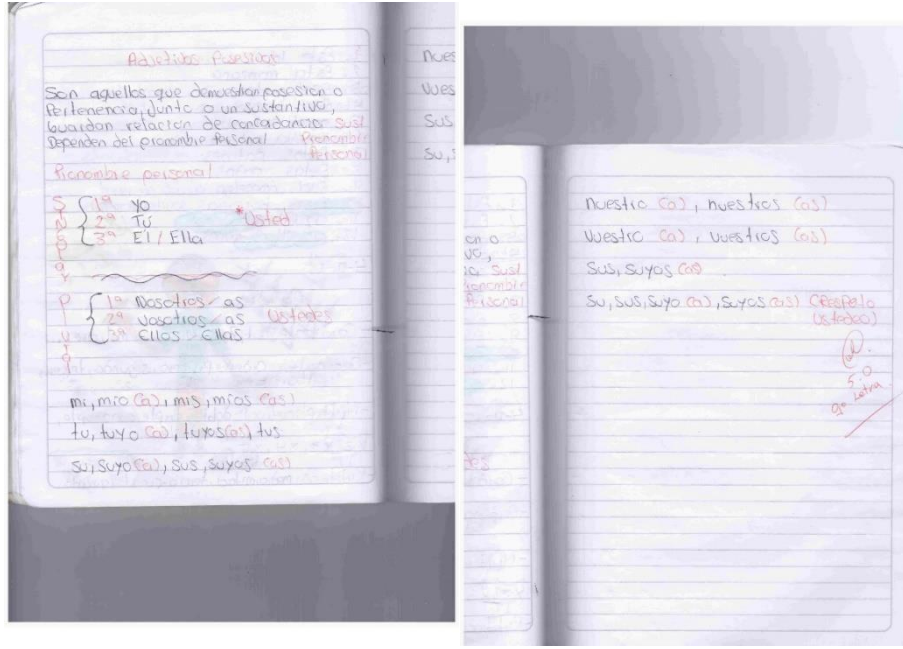 Adjetivos Posesivos
Son aquellos que demuestran posesion o
Pertenencia, Junto a un sustantivo,
Guardan relación de concordancia Sust
Dependen del pronombre Personal Pronombre
Personal
Pronombre personal
1ª Yo
2ª Tú *Usted
3ª El / Ella
1ª Nosotros - as
2ª Vosotros - as Ustedes
3ª Ellos - Ellas
mi, mio (a), mis, mios (as)
tu, tuyo (a), tuyos (as), tus
su, suyo (a), sus, suyos (as)
nues
vues
Sus,
Su, s
on o
vo,
ia Sust
ronombre
Personal
des
nuestro (a), nuestros (as)
vuestro (a), vuestros (as)
Sus, suyos (as)
su, sus, suyo (a), suyos (as) (Respeto
Ustedes)
5.0
Letra